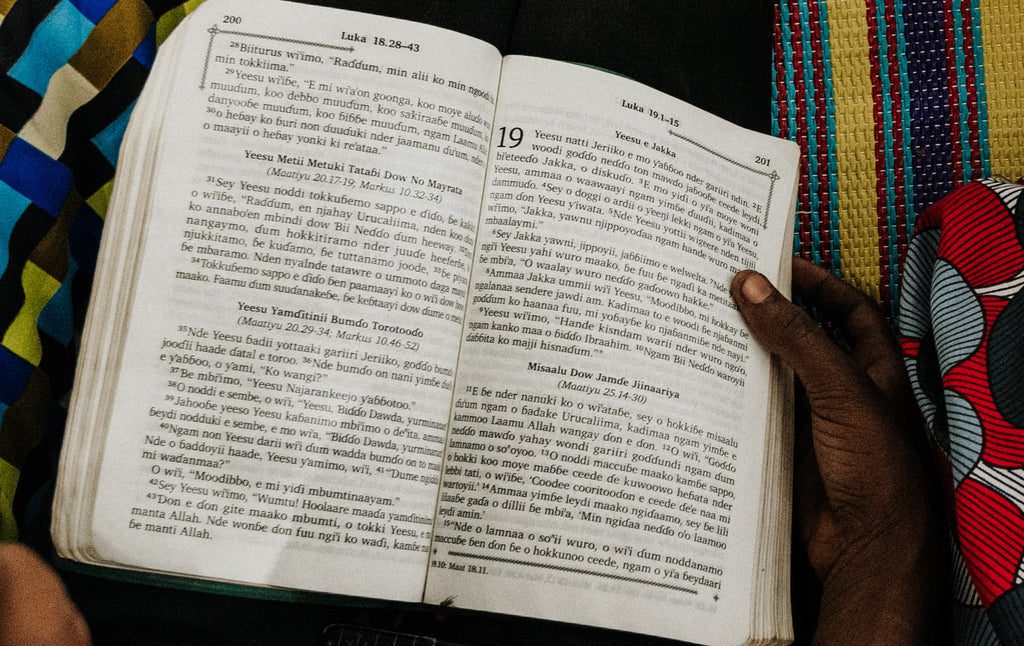 200
Luka 18.28–43
28Biiturus wi'imo, "Raɗɗum, min alii ko min ngoodi
min tokkiima."
29Yeesu wi'iɓe, "E mi wi'a'on goonga, koo moye aluɗo
muuɗum, koo debbo muuɗum, koo sakiraaɓe muuɗum,
danyooɓe muuɗum, koo ɓiɓɓe muuɗum, ngam Laamu
30o heɓay ko ɓuri non duuɗuki nder jaamanu ɗu'um, nden
o maayii o heɓay yonki ki re'ataa."
Yeesu Metii Metuki Tataɓi Dow No Mayrata
(Maatiyu 20.17-19; Markus 10.32-34)
31Sey Yeesu noddi tokkuɓemo sappo e ɗiɗo, ɓe
o wi'iɓe, "Raɗɗum, en njahay Urucaliima, nden koo
ko annabo'en mbindi dow Bii Neɗɗo ɗum heeway.
nangaymo, ɗum hokkitiramo nder juuɗe heeferɓe,
njukkitamo, ɓe kuɗamo, ɓe tuttanamo joode, 33ɓe
ɓe mbaramo. Nden nyalnde tatawre o ummoto daga
34Tokkuɓemo sappo e ɗiɗo ɓen paamaayi ko o wi'i dow
maako. Faamu ɗum suuɗanakeɓe, ɓe keɓtaayi dow ɗume o
Yeesu Yamɗitinii Bumɗo Torotooɗo
(Maatiyu 20.29-34; Markus 10.46-52)
35Nde Yeesu ɓadii yottaaki gariiri Jeriiko, goɗɗo
jooɗii haade ɗatal e toroo. 36Nde bumɗo on nani yimɓe
e yaɓɓoo, o ƴami, "Ko wangi?"
37Be mbi'imo, "Yeesu Najarankeejo yaɓɓotoo."
38O noddi e sembe, o wi'i, "Yeesu, Biɗɗo Dawda,
39Jahooɓe yeeso Yeesu kaɓanimo mbi'imo o de''ita,
ɓeydi nodduki e sembe, e mo wi'a, "Biɗɗo Dawda,
40Ngam non Yeesu darii wi'i ɗum wadda bumɗo on to
Nde o ɓaddoyii haade, Yeesu ƴamimo, wi'i, 41"Dume
mi waɗanmaa?"
O wi'i, "Moodibbo, e mi yiɗi mbumtinaayam."
42Sey Yeesu wi'imo, "Wumtu! Hoolaare maaɗa
43Don e ɗon gite maako mbumti, o tokki Yeesu,
manta Allah. Nde wonɓe ɗon fuu ngi'i ko waɗi,
ɓe manti Allah.
Luka 19.1–15
201
Yeesu e Jakka
19 Yeesu natti Jeriiko e mo yaɓɓoo nder gariiri ndin. 2E
woodi goɗɗo neɗɗo ton mawɗo jaɓooɓe ceede leydi,
bi'eteeɗo Jakka, o diskuɗo. 3E mo yiɗi o yi'a moye woni
Yeesu, ammaa o waawaayi ngam yimɓe ɗuuɗi, kadimaa o
dammuɗo. 4Sey o doggi o ardii o yeeŋi lekki ngam o yi'a Yeesu,
ngam ɗon Yeesu yi'wata. 5Nde Yeesu yottii wigeere nden tijjii
wi'imo, "Jakka, yawnu njippoyoɗaa ngam hande wuro
mbaalaymi."
6Sey Jakka yawni, jippoyii, jaɓɓiimo e welwelta. 7Nde
ngi'i Yeesu yahi wuro maako, ɓe fuu ɓe ngadi ka
ɓe mbi'a, "O waalay wuro neɗɗo gaɗoowo hakke."
8Ammaa Jakka ummii wi'i Yeesu, "Moodibbo, mi hokkay
ngalanaa sendere jawdi am. Kadimaa to e woodi ɓe njaɓanmi
goɗɗum ko haanaa fuu, mi yoɓayɓe ko njaɓanmiɓe nde nayi."
9Yeesu wi'imo, "Hande kisndam warii nder wuro ngo'o,
ngam kanko maa o ɓiɗɗo Ibraahim. 10Ngam Bii Neɗɗo waroyii
ɗaɓɓita ko majji hisnaɗum."*
Misaalu Dow Jamɗe Jiinaariya
(Maatiyu 25.14-30)
11E ɓe nder nanuki ko o wi'ataɓe, sey o hokkiɓe misaalu
ɗu'um ngam o ɓadake Urucaliima, kadimaa ngam yimɓe e
kammoo Laamu Allah wangay ɗon e ɗon. 12O wi'i, "Goɗɗo
neɗɗo mawɗo yahay wondi gariiri goɗɗundi ngam ɗum
lamnamo o so''oyoo. 13O noddi maccuɓe maako kamɓe sappo,
o hokki koo moye maɓɓe ceede ɗe kuwoowo heɓata nder
lebbi tati, o wi'iɓe, 'Coodee cooritooɗon e ceede ɗe'e naa mi
wartoyii.' 14Ammaa yimɓe leydi maako ngiɗaamo, sey ɓe lili
lilaaɓe gaɗa o dillii ɓe mbi'a, 'Min ngiɗaa neɗɗo o'o laamoo
leydi amin.'
15"Nde o lamnaa o so''ii wuro, o wi'i ɗum noddanamo
maccuɓe ɓen ɗon ɓe o hokkunoo ceede, ngam o yi'a ɓeydaari
19.10: Maat 18.11.